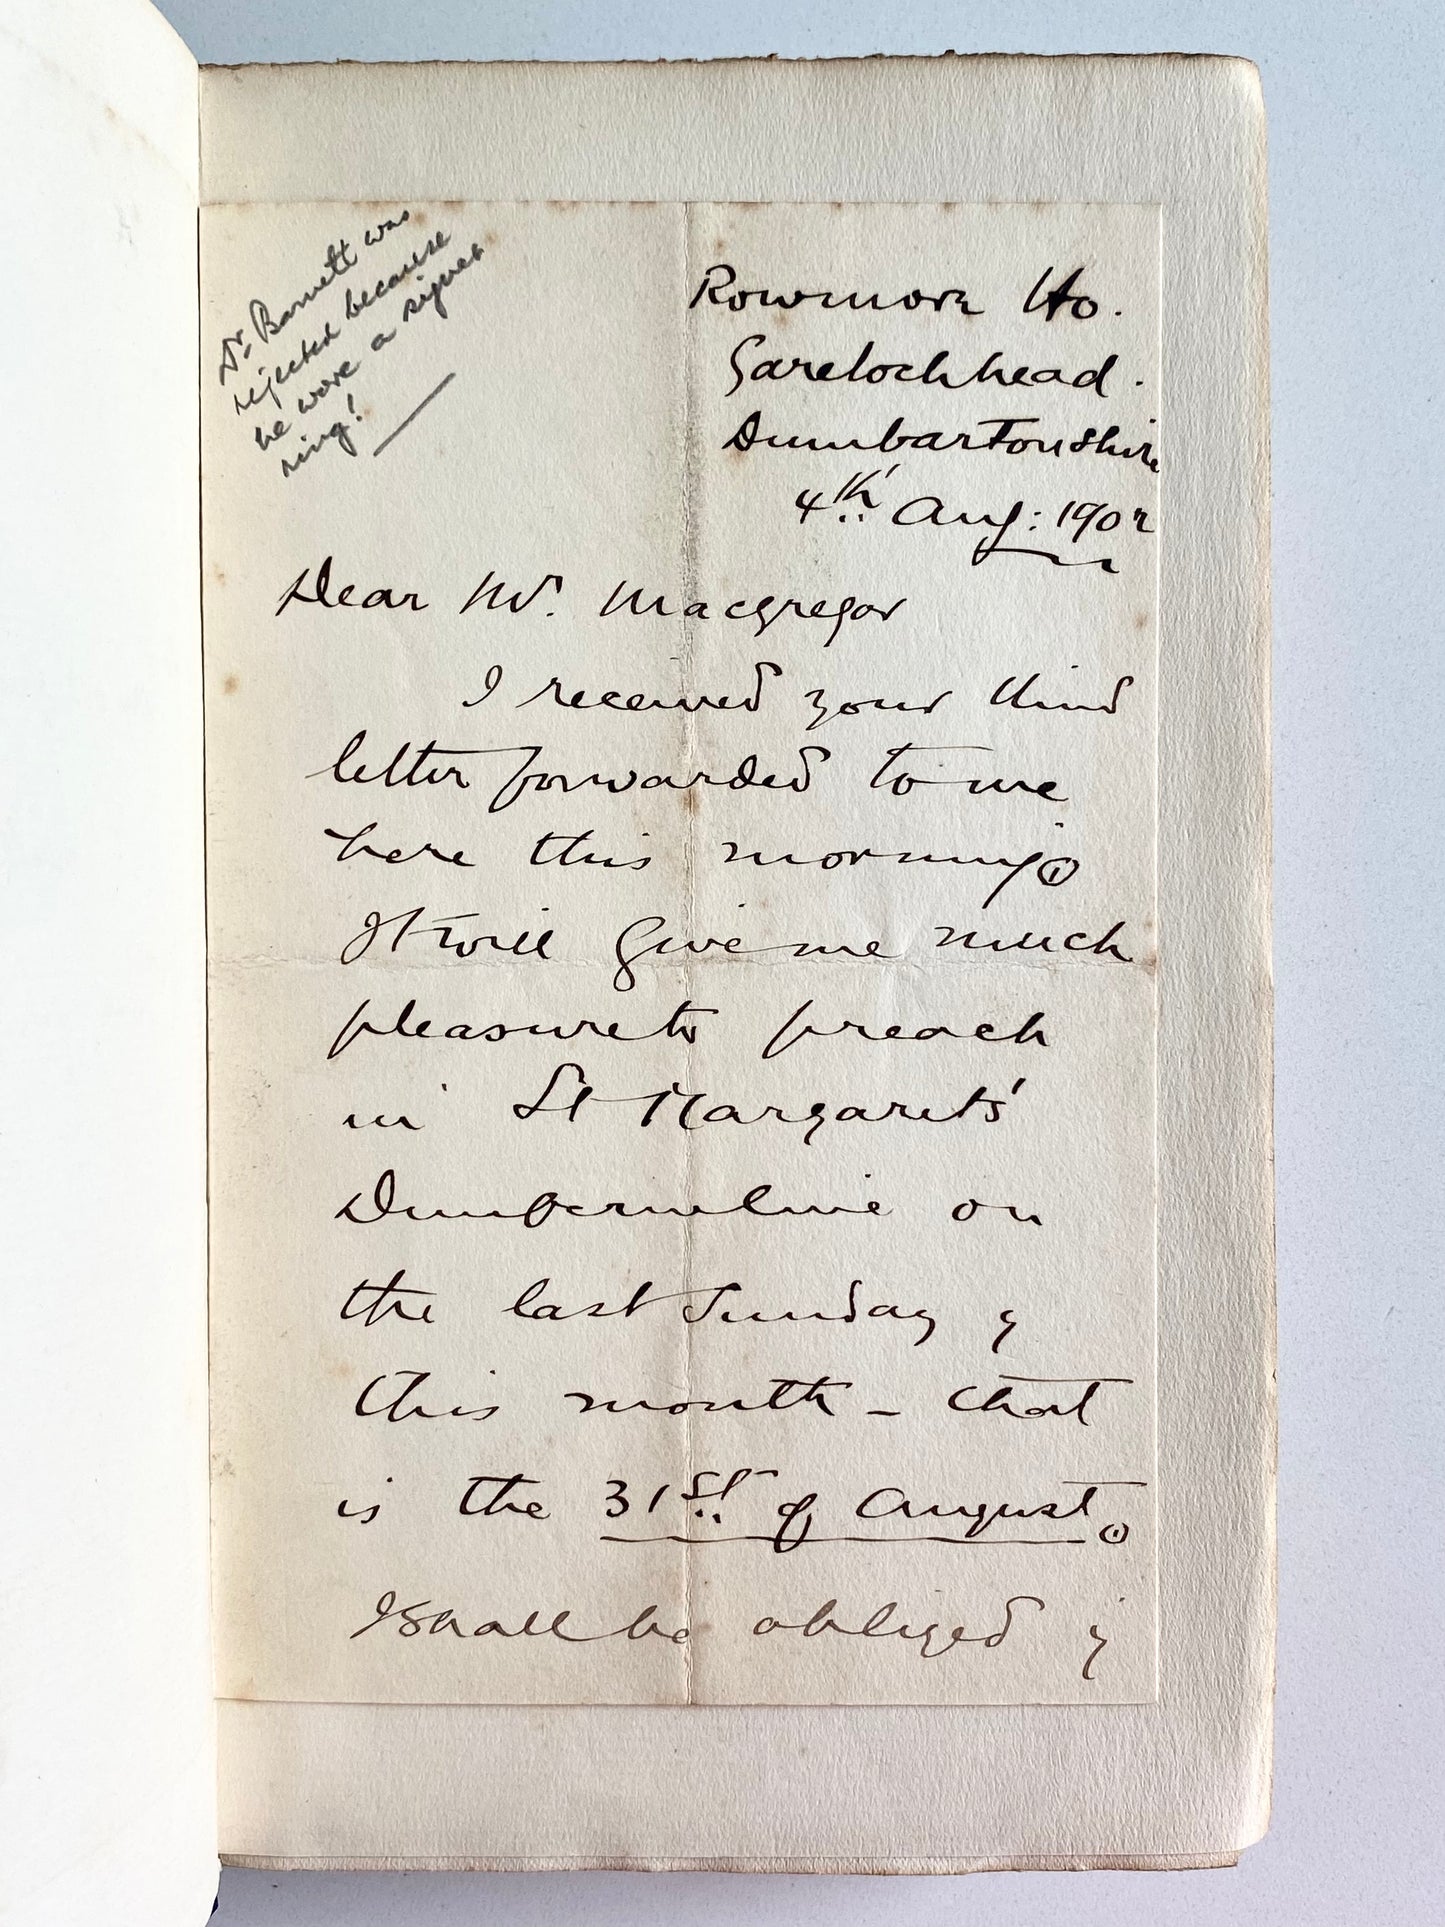 Dr. Barnett was
rejected because
he wore a signet
ring!
Rowmore Ho.
Garelochhead.
Dumbartonshire
4th Aug: 1902
Dear Mr. Macgregor
I received your kind
letter forwarded to me
here this morning.
It will give me much
pleasure to preach
in St Margaret's
Dunfermline on
the last Sunday of
this month - that
is the 31st of August.
I shall be obliged if